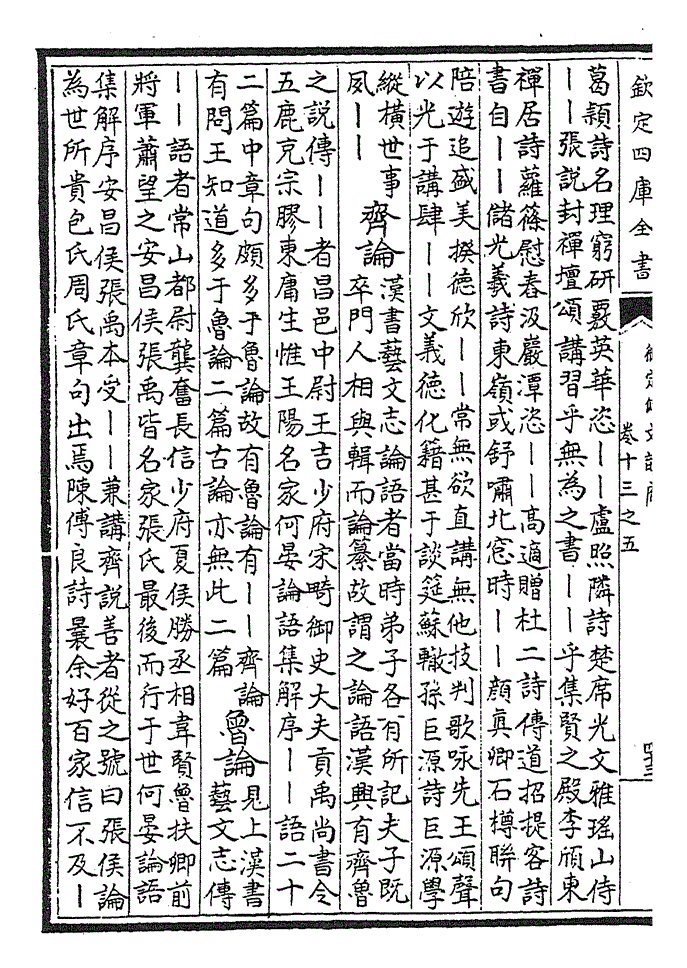 欽定四庫全書
御定佩文韻府
卷十三之五
葛穎詩名理窮研覈英華恣丨丨盧照隣詩楚席光文雅瑤山侍
丨丨張說封禪壇頌講習乎無為之書丨丨乎集賢之殿李頎東
禪居詩蘿篠慰春汲巖潭恣丨丨高適贈杜二詩傳道招提客詩
書自丨丨儲光羲詩東嶺或舒嘯北窓時丨丨顏真卿石樽聯句
陪遊追盛美揆德欣丨丨常無欲直講無他技判歌咏先王頌聲
以光于講肆丨丨文義德化籍甚于談筵蘇轍孫巨源詩巨源學
縱橫世事
夙丨丨
齊論
漢書藝文志論語者當時弟子各有所記夫子既
卒門人相與輯而論纂故謂之論語漢興有齊魯
之說傳丨丨者昌邑中尉王吉少府宋畸御史大夫貢禹尚書令
五鹿克宗膠東庸生惟王陽名家何晏論語集解序丨丨語二十
二篇中章句頗多于魯論故有魯論有丨丨齊論
有問王知道多于魯論二篇古論亦無此二篇
魯論
見上漢書
藝文志傳
丨丨語者常山都尉龔奮長信少府夏侯勝丞相韋賢魯扶卿前
將軍蕭望之安昌侯張禹皆名家張氏最後而行于世何晏論語
集解序安昌侯張禹本受丨丨兼講齊說善者從之號曰張侯論
為世所貴包氏周氏章句出焉陳傅良詩曩余好百家信不及丨